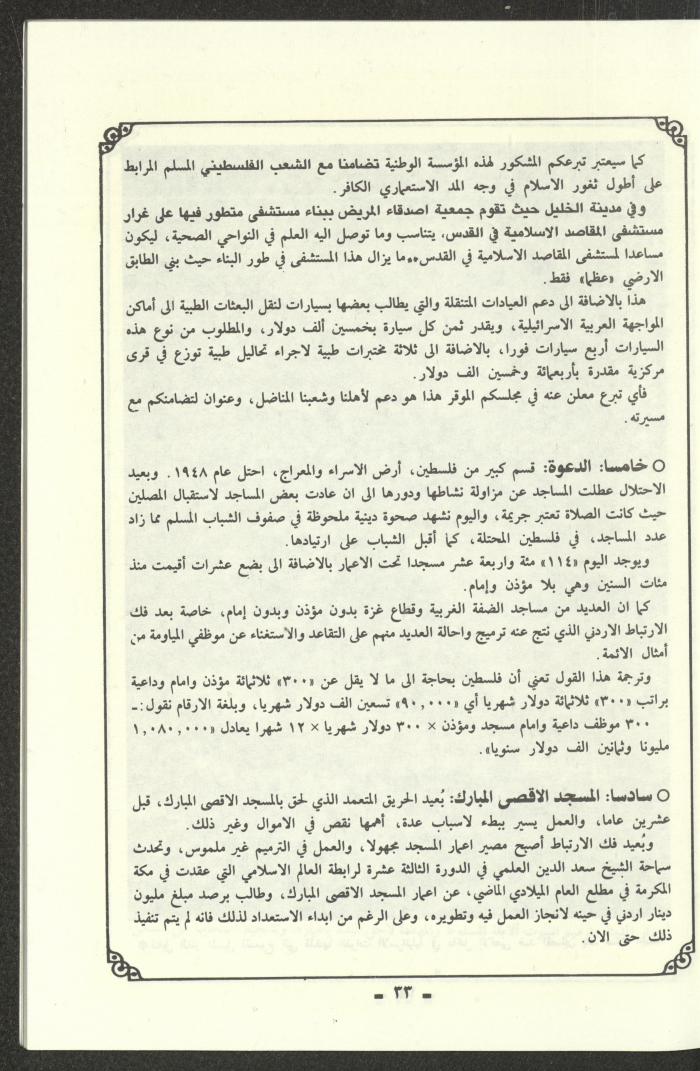 كما سيعتبر تبرعكم المشكور لهذه المؤسسة الوطنية تضامنا مع الشعب الفلسطيني المسلم المرابط
على أطول ثغور الاسلام في وجه المد الاستعماري الكافر.
وفي مدينة الخليل حيث تقوم جمعية اصدقاء المريض ببناء مستشفى متطور فيها على غرار
مستشفى المقاصد الاسلامية في القدس، يتناسب وما توصل اليه العلم في النواحي الصحية، ليكون
مساعدا لمستشفى المقاصد الاسلامية في القدس،،ما يزال هذا المستشفى في طور البناء حيث بني الطابق
الارضي «عظما» فقط.
هذا بالاضافة الى دعم العيادات المتنقلة والتي يطالب بعضها بسيارات لنقل البعثات الطبية الى أماكن
المواجهة العربية الاسرائيلية، ويقدر ثمن كل سيارة بخمسين ألف دولار، والمطلوب من نوع هذه
السيارات أربع سيارات فورا، بالاضافة الى ثلاثة مختبرات طبية لاجراء تحاليل طبية توزع في قرى
مركزية مقدرة بأربعمائة وخمسين الف دولار.
فأي تبرع معلن عنه في مجلسكم الموقر هذا هو دعم لأهلنا وشعبنا المناضل، وعنوان لتضامنكم مع
مسيرته.
○ خامسا: الدعوة: قسم كبير من فلسطين، أرض الاسراء والمعراج، احتل عام ١٩٤٨. وبعيد
الاحتلال عطلت المساجد عن مزاولة نشاطها ودورها الى ان عادت بعض المساجد لاستقبال المصلين
حيث كانت الصلاة تعتبر جريمة، واليوم نشهد صحوة دينية ملحوظة في صفوف الشباب المسلم مما زاد
عدد المساجد، في فلسطين المحتلة، كما أقبل الشباب على ارتيادها.
ويوجد اليوم «١١٤» مئة واربعة عشر مسجدا تحت الاعمار بالاضافة الى بضع عشرات أقيمت منذ
مئات السنين وهي بلا مؤذن وإمام.
كما ان العديد من مساجد الضفة الغربية وقطاع غزة بدون مؤذن وبدون إمام، خاصة بعد فك
الارتباط الاردني الذي نتج عنه ترميج واحالة العديد منهم على التقاعد والاستغناء عن موظفي المياومة من
أمثال الائمة.
وترجمة هذا القول تعني أن فلسطين بحاجة الى ما لا يقل عن «٣٠٠» ثلاثمائة مؤذن وامام وداعية
براتب «٣٠٠» ثلاثمائة دولار شهريا أي «٩٠,٠٠٠» تسعين الف دولار شهريا، وبلغة الارقام نقول:ـ
٣٠٠ موظف داعية وامام مسجد ومؤذن × ٣٠٠ دولار شهريا × ١٢ شهرا يعادل «١,٠٨٠,٠٠٠
مليونا وثمانين الف دولار سنويا».
○ سادسا: المسجد الاقصى المبارك: بُعيد الحريق المتعمد الذي لحق بالمسجد الاقصى المبارك، قبل
عشرين عاما، والعمل يسير ببطء لاسباب عدة، أهمها نقص في الاموال وغير ذلك.
وبُعيد فك الارتباط أصبح مصير اعمار المسجد مجهولا، والعمل في الترميم غير ملموس، وتحدث
سماحة الشيخ سعد الدين العلمي في الدورة الثالثة عشرة لرابطة العالم الاسلامي التي عقدت في مكة
المكرمة في مطلع العام الميلادي الماضي، عن اعمار المسجد الاقصى المبارك، وطالب برصد مبلغ مليون
دينار اردني في حينه لانجاز العمل فيه وتطويره، وعلى الرغم من ابداء الاستعداد لذلك فانه لم يتم تنفيذ
ذلك حتى الان.
ـ ٣٣ ـ